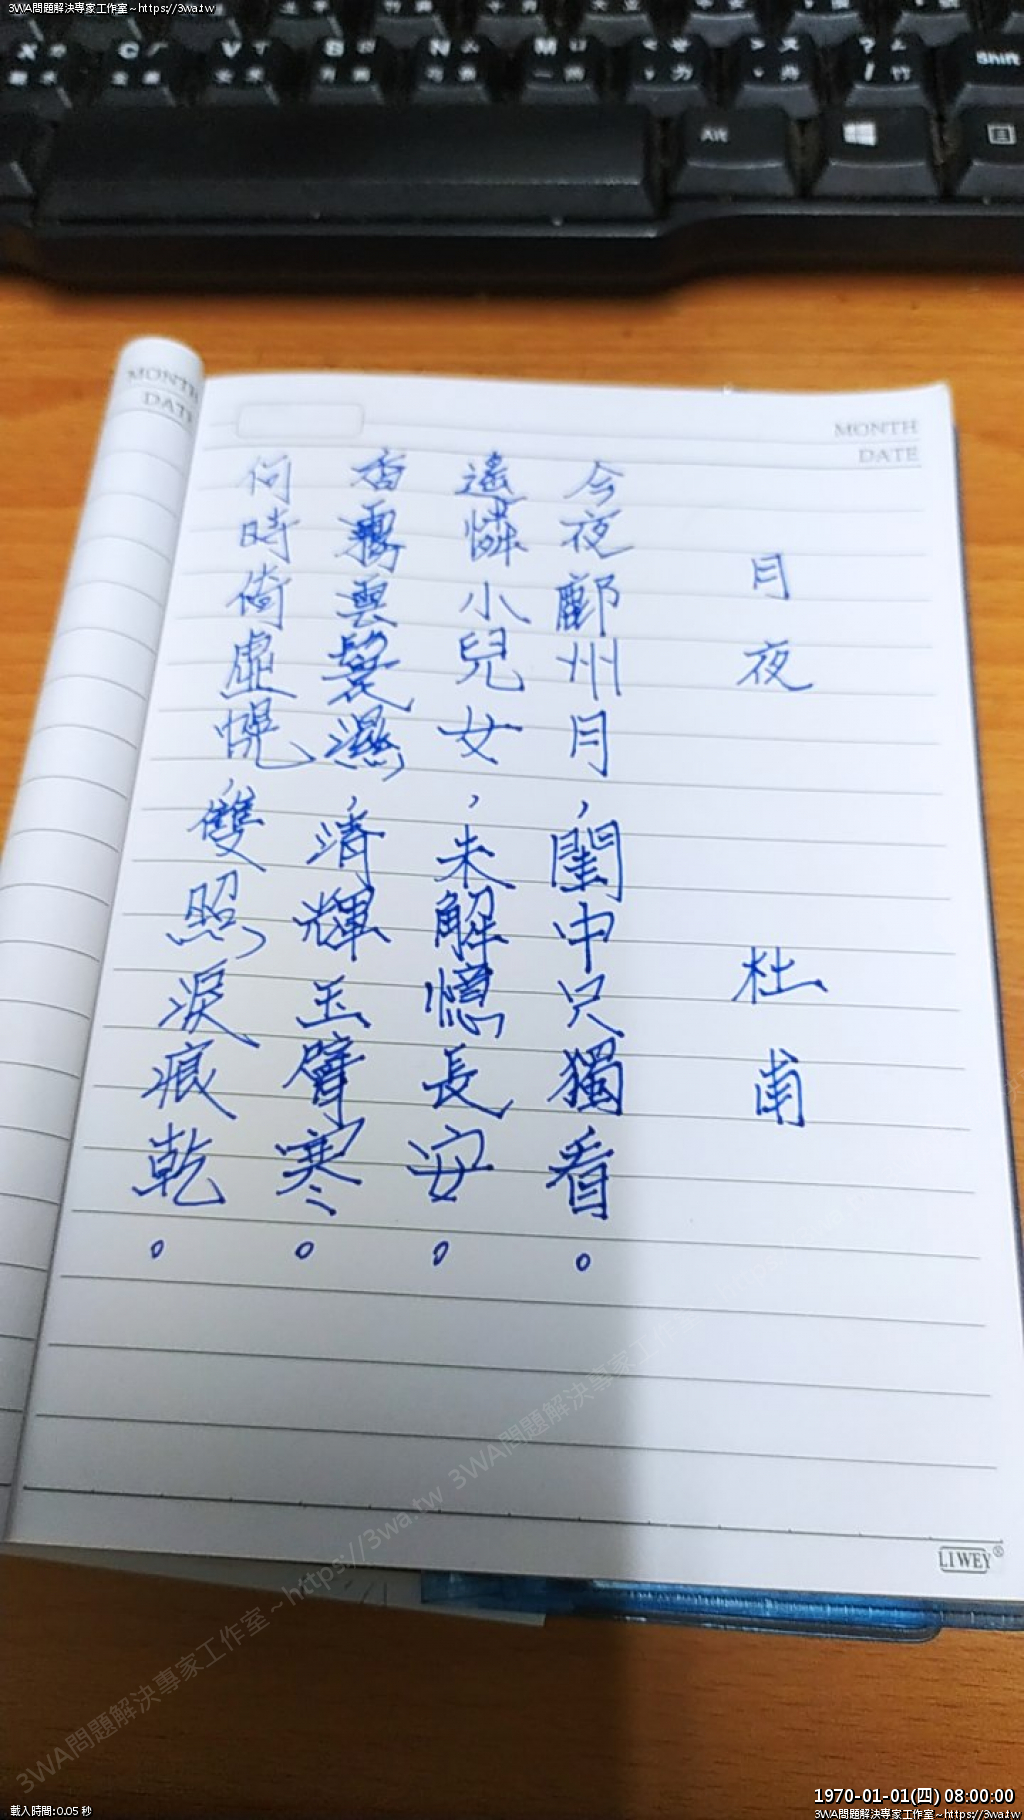 3WA問題解決專家工作室~https://3wa.tw
X
C
V
B
N
M
Shift
Alt
MONTH
DATE
MONTH
DATE
月夜
杜甫
今夜鄜州月,閨中只獨看。
遙憐小兒女,未解憶長安。
香霧雲鬟濕,清輝玉臂寒。
何時倚虛幌,雙照淚痕乾。
LIWEY®
3WA問題解決專家工作室~https://3wa.tw 3WA問題解決專家工作室~https://3wa.tw
載入時間:0.05 秒
1970-01-01(四) 08:00:00
3WA問題解決專家工作室~https://3wa.tw